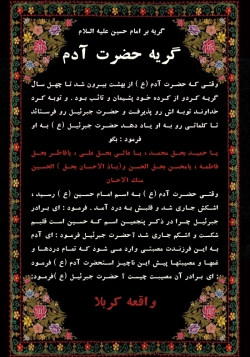 گریه بر امام حسین علیه السلام
گریه حضرت آدم
وقتی که حضرت آدم (ع) از بهشت بیرون شد تا چهل سال
گریه کرد و از کرده خود پشیمان و تائب بود . و توبه کرد
خداوند توبه اش رو پذیرفت و حضرت جبرئیل رو فرستاد
تا کلماتی رو به او یاد دهد حضرت جبرئیل (ع) به او
فرمود : بگو
یا حمید بحق محمد ، یا عالی بحق علی ، یا فاطر بحق
فاطمه ، یا محسن بحق الحسن و (یا ذا الاحسان بحق ) الحسین
منک الاحسان
وقتی حضرت آدم (ع) به اسم امام حسین (ع) رسید ،
اشکش جاری شد و قلبش به درد آمد . فرمود : ای برادر
جبرئیل چرا در ذکر پنجمین اسم که حسین است قلبم
شکست و اشکم جاری شد ؟ حضرت جبرئیل فرمود : ای آدم
به این فرزندت مصیبتی وارد می شود که تمام دردها و
غمها و مصیبتها پیش این ناچیز است حضرت آدم (ع) فرمود
: ای برادر آن مصیبت چیست ؟ حضرت جبرئیل (ع) فرمود:
واقعه کربلا